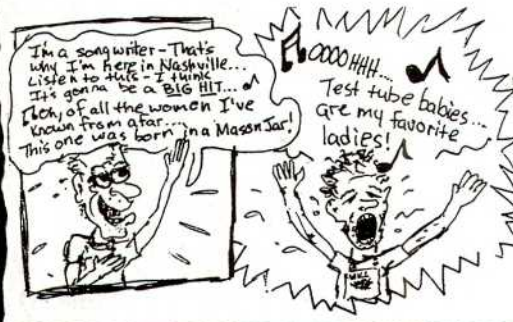 I'm a songwriter-That's
why I'm here in Nashville...
Listen to this-I think
It's gonna be a BIG HIT...♪
Oooh, of all the women I've
known from afar...
This one was born in a Mason Jar!
♫OOOOHHH... ♪
Test tube babies...
are my favorite
ladies!♪